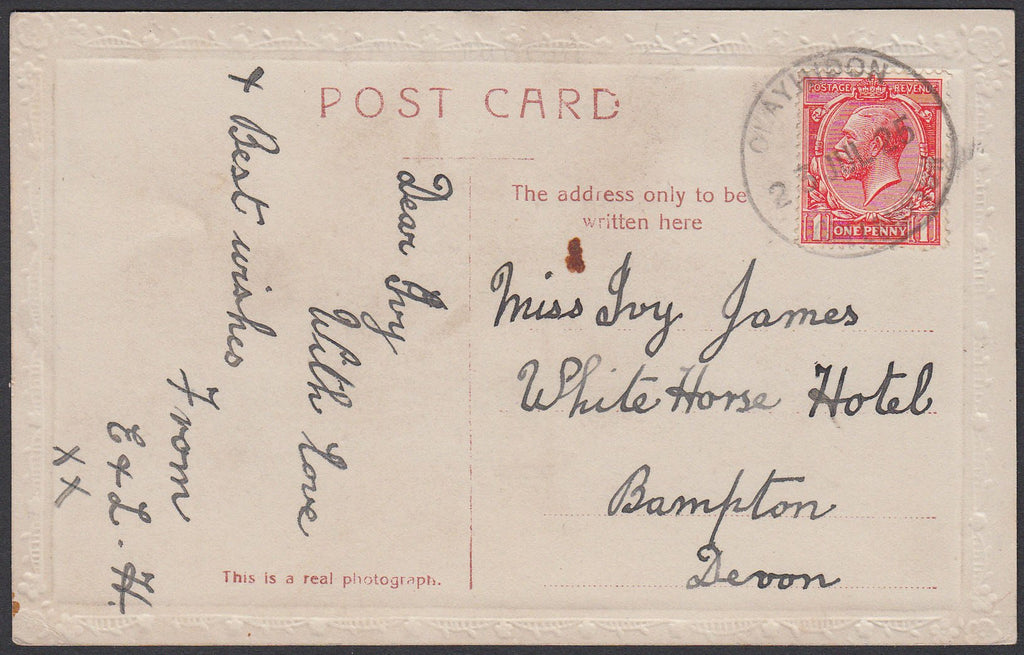 POST CARD
The address only to be
written here
POSTAGE REVENUE
1 ONE PENNY 1
JUL 25
Miss Ivy James
White Horse Hotel
Bampton
Devon
Dear Ivy
With love
+ Best wishes
From
E & L. H.
X X
This is a real photograph.